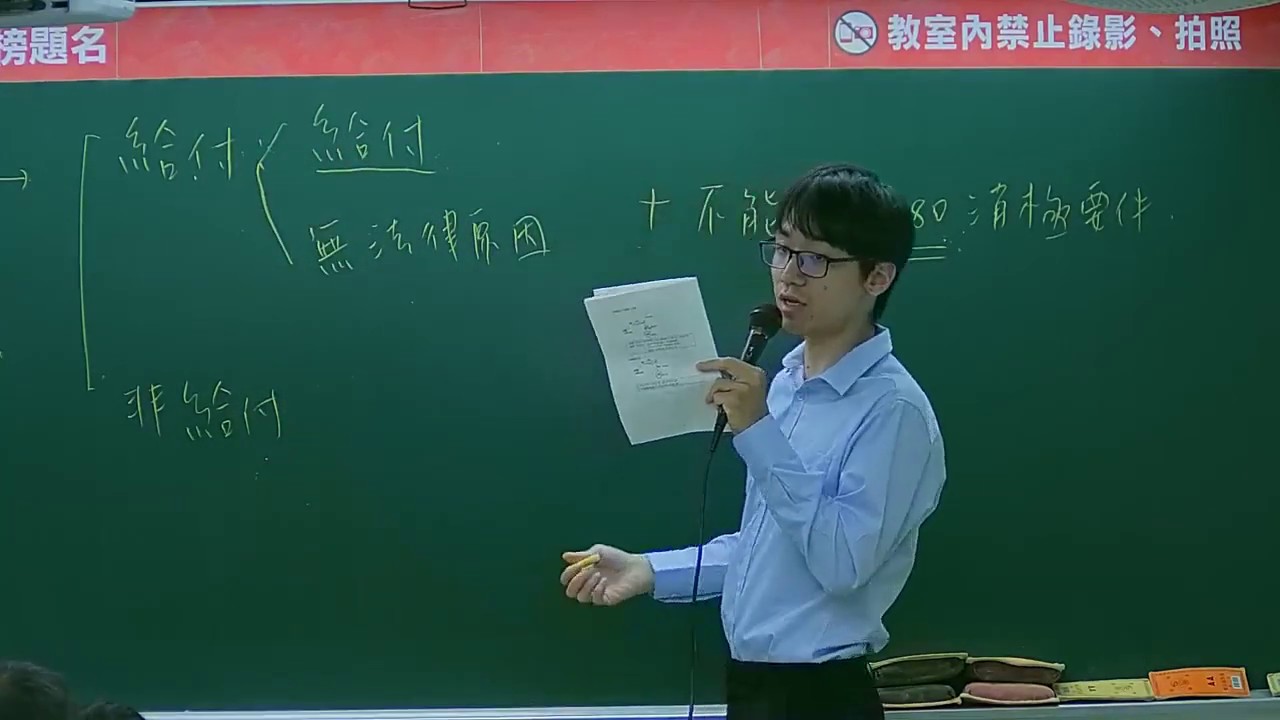 榜題名
教室內禁止錄影、拍照
給付
給付
無法律原因
+ 不能 80 消極要件
非給付